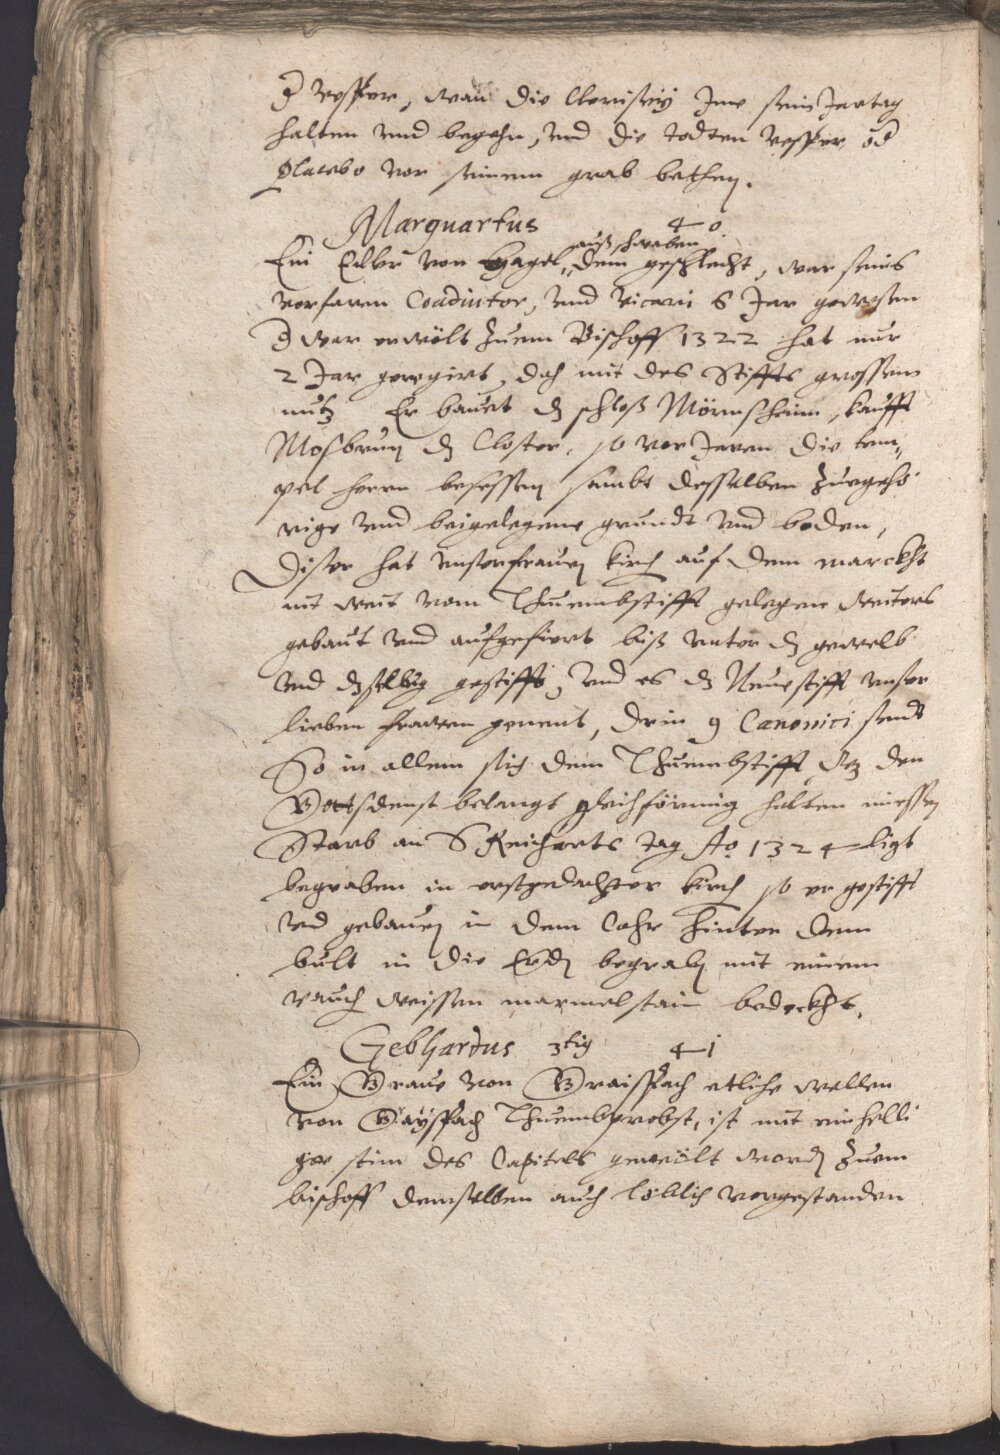 d Vesper, wan die Clerisey Jme sein Jartag
halten vnd begehn, vnd die todten Vesper od
Placebo vor seinem grab bethen.
Marquartus 40
auß schwaben
Ein Edler von Hagel, dem geschlecht, war seins
vorfaren Coadiutor, vnd Vicari 6 Jar gewesen
d war erwölt zuem Bischoff 1322 hat nur
2 Jar geregirt, doch mit des Stiffts grossem
nutz Er bauet dz schloß Mörnshaim, kaufft
Mosbrun dz Closter, so vor Jaren die tem„
pel herrn besessen sambt desselben zuegehö
rige vnd beigelegene grundt vnd boden,
Diser hat vnser frauen kirch auf dem marckht
nit weit vom Thuembstifft gelegen weiters
gebaut vnd aufgefiert biß vnter dz gewelb
vnd dzselbig gestifft, vnd es dz Neuestifft vnser
lieben frawen genent, drin 9 Canonici seindt
So in allem sich dem Thuembstifft, den
Gottsdienst belangt gleichförmig halten miessen
Starb an S Reicharts tag Ao 1324 ligt
begraben in erstgedachter kirch so er gestifft
vnd gebauen in dem Cohr hinter dem
bult in die Erden begraben mit einem
rauch weissen marmelstain bedeckht.
Gebhardus 3tig 41
Ein Graue von Graisspach etliche wellen
von Tayspach Thuembprobst, ist mit einhelli
ger stim des Capitels gewölt worden zuem
bischoff demselben auch löblich vorgestanden